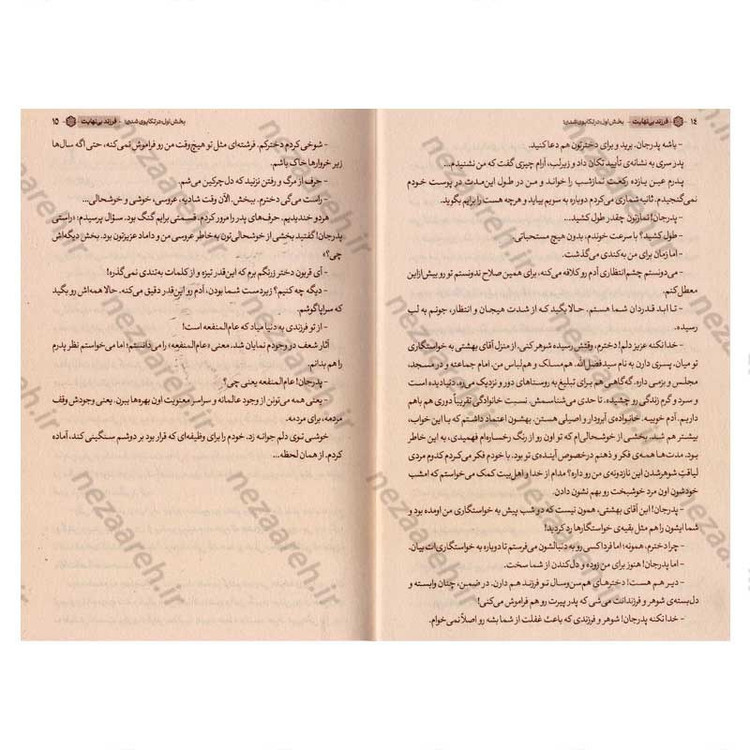 ۱٤ فرزند بی‌نهایت - بخش اول: در تکاپوی شدی!
- باشه پدرجان. برید و برای دخترتون هم دعا کنید.
پدر سری به نشانه‌ی تأیید تکان داد و زیرلب، آرام چیزی گفت که من نشنیدم...
پدرم عین یازده رکعت نمازشب را خواند و من در طول این‌مدت در پوست خودم
نمی‌گنجیدم. ثانیه‌شماری می‌کردم دوباره به سریم بیاید و هرچه هست را برایم بگوید.
- پدرجان! نمازتون چقدر طول کشید.
- طول کشید؟ با سرعت خوندم، بدون هیچ مستحباتی.
- اما زمان برای من به‌کندی می‌گذشت.
- می‌دونستم چشم‌انتظاری آدم رو کلافه می‌کنه، برای همین صلاح ندونستم تو رو بیش‌ازاین
معطل کنم.
- تا ابد قدردان شما هستم. حالا بگید که از شدت هیجان و انتظار، جونم به لب
رسیده.
- خدا نکنه عزیز دلم! دخترم، وقتش رسیده شوهر کنی. از منزل آقای بهشتی به خواستگاری
تو میان. پسری دارن به نام سیدفضل‌الله. هم‌مسلک و هم‌لباس من. امام جماعته و در مسجد،
مجلس و بزمی داره. گه‌گاهی هم برای تبلیغ به روستاهای دور و نزدیک می‌ره. دنیادیده است
و سرد و گرم زندگی رو چشیده. تا حدی می‌شناسمش. نسبت خانوادگی تقریباً دوری هم باهم
داریم. آدم خوبیه. خانواده‌ی آبرودار و اصیلی هستن. بهشون اعتماد داشتم که با این خواب،
بیشتر هم شد. بخشی از خوشحالی‌ام که تو اون رو از رنگ رخساره‌ام فهمیدی، به این خاطر
بود. مدت‌ها همه‌ی فکر و ذهنم درخصوص آینده‌ی تو بود. با خودم فکر می‌کردم کدوم مردی
لیاقت شوهرشدن این نازدونه‌ی من رو داره؟ مدام از خدا و اهل‌بیت کمک می‌خواستم که امشب
خودشون اون مرد خوشبخت رو بهم نشون دادن.
- پدرجان! این آقای بهشتی، همون نیست که دو شب پیش به خواستگاری من اومده بود و
شما ایشون را هم مثل بقیه‌ی خواستگارها رد کردید!
- چرا دخترم، همونه؛ اما فردا کسی رو به دنبالشون می‌فرستم تا دوباره به خواستگاری‌ات بیان.
- اما پدرجان! هنوز برای من زوده و دل‌کندن از شما سخت.
- دیر هم هست! دخترهای هم‌سن‌وسال تو فرزند هم دارن. در ضمن، چنان وابسته و
دل‌بسته‌ی شوهر و فرزندانت می‌شی که پدر پیرت رو هم فراموش می‌کنی!
- خدا نکنه پدرجان! شوهر و فرزندی که باعث غفلت از شما بشه رو اصلاً نمی‌خوام.
بخش اول: در تکاپوی شدی! - فرزند بی‌نهایت ۱۵
- شوخی کردم دخترکم. فرشته‌ای مثل تو هیچ‌وقت من رو فراموش نمی‌کنه، حتی اگه سال‌ها
زیر خروارها خاک باشم.
- حرف از مرگ و رفتن نزنید که دل‌چرکین می‌شم.
- راست می‌گی دخترم. ببخش. الآن وقت شادیه، عروسی، خوشی و خوشحالی...
هردو خندیدیم. حرف‌های پدر را مرور کردم. قسمتی برایم گنگ بود. سؤال پرسیدم: «راستی
پدرجان! گفتید بخشی از خوشحالی‌تون به‌خاطر عروسی من و داماد عزیزتون بود. بخش دیگه‌اش
چی؟»
- آی قربون دختر زرنگم برم که این‌قدر تیزه و از کلمات به‌تندی نمی‌گذره!
- دیگه چه کنیم؟ زیردست شما بودن، آدم رو این‌قدر دقیق می‌کنه. حالا همه‌اش رو بگید
که سراپا گوشم.
- از تو فرزندی به دنیا میاد که عام‌المنفعه است!
آثار شعف در وجودم نمایان شد. معنی «عام‌المنفعه» را می‌دانستم؛ اما می‌خواستم نظر پدرم
را هم بدانم.
- پدرجان! عام‌المنفعه یعنی چی؟
- یعنی همه می‌تونن از وجود عالمانه و سراسر معنویت اون بهره‌ها ببرن. یعنی وجودش وقف
مردمه، برای مردمه.
خوشی توی دلم جوانه زد. خودم را برای وظیفه‌ای که قرار بود بر دوشم سنگینی کند، آماده
کردم. از همان لحظه...
nezaareh.ir
nezaareh.ir
nezaareh.ir
nezaareh.ir
nezaareh.ir
nezaareh.ir